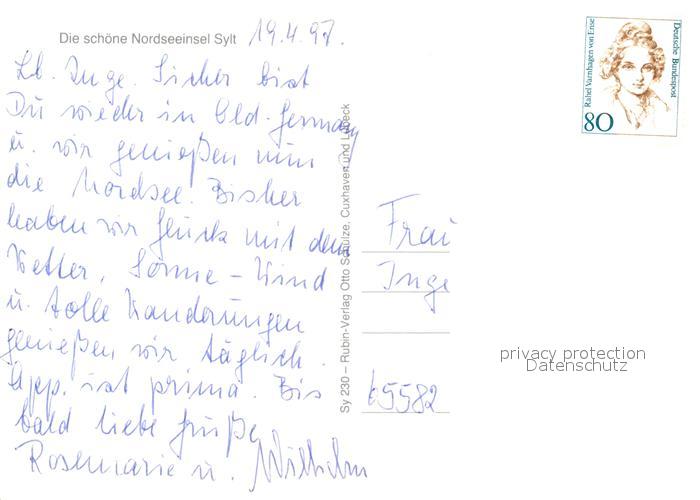 Die schöne Nordseeinsel Sylt 19.4.97.
Lb. Inge. Sicher bist
Du wieder in Old-Germany
u. wir genießen nun
die Nordsee. Bisher
haben wir Glück mit dem
Wetter, Sonne - Wind
u. tolle Wanderungen
genießen wir täglich.
App. ist prima. Bis
bald liebe Grüße
Rosemarie u. Wilhelm
Sy 230 – Rubin-Verlag Otto Schulze, Cuxhaven und Lübeck
Frau
Inge
65582
Rahel Varnhagen von Ense
Deutsche Bundespost
80
privacy protection
Datenschutz